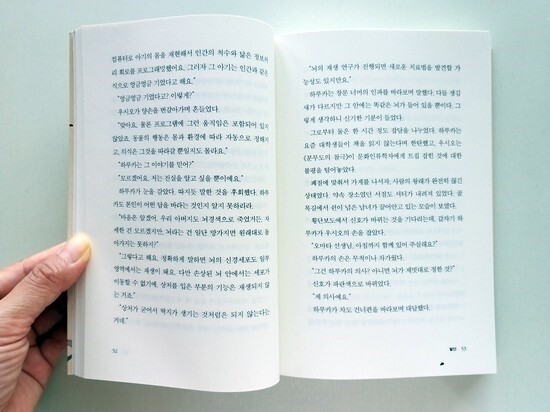 컴퓨터로 아기의 몸을 재현해서 인간의 척수와 닮은 정보처
리 회로를 프로그래밍했어요. 그러자 그 아기는 인간과 같은
식으로 엉금엉금 기었다고 해요."
"엉금엉금 기었다고? 이렇게?"
우시오가 양손을 번갈아가며 흔들었다.
"맞아요. 물론 프로그램에 그런 움직임은 포함되어 있지
않았죠. 동물의 행동은 몸과 환경에 따라 자동으로 정해지
고, 의식은 그것을 따라갈 뿐일지도 몰라요."
"하루카는 그 이야기를 믿어?"
"모르겠어요. 저는 진실을 알고 싶을 뿐이에요."
하루카가 눈을 감았다. 따지듯 말한 것을 후회했다. 하루
카도 본인이 어떤 답을 바라는 것인지 알지 못하리라.
"마음은 알겠어. 우리 아버지도 뇌경색으로 죽었거든. 자
세한 건 모르겠지만, 뇌라는 건 일단 망가지면 원래대로 돌
아가지는 못하지?"
"그렇다고 해요. 정확하게 말하면 뇌의 신경세포도 일부
영역에서는 재생이 돼요. 다만 손상된 뇌 안에서는 세포가
이동할 수 없기에, 상처를 입은 부분의 기능은 재생되지 않
는 거죠."
"상처가 굳어서 딱지가 생기는 것처럼은 되지 않는다는
거네."
52
"뇌의 재생 연구가 진행되면 새로운 치료법을 발견할 가
능성도 있지만요."
하루카는 창문 너머의 인파를 바라보며 말했다. 다들 생김
새가 다르지만 그 안에는 똑같은 뇌가 들어 있을 뿐이다. 그
렇게 생각하니 신기한 기분이 들었다.
그로부터 둘은 한 시간 정도 잡담을 나누었다. 하루카는
요즘 대학생들이 책을 읽지 않는다며 한탄했고, 우시오는
《분무도의 참극》이 문화인류학자에게 트집 잡힌 것에 대한
불평을 털어놓았다.
폐점에 맞춰서 가게를 나서자, 사람의 왕래가 완전히 끊긴
상태였다. 약속 장소였던 서점도 셔터가 내려져 있었다. 골
목길에서 신이 난 남녀가 끌어안고 있는 모습이 보였다.
횡단보도에서 신호가 바뀌는 것을 기다리는데, 갑자기 하
루카가 우시오의 손을 잡았다.
"오마타 선생님, 아침까지 함께 있어 주실래요?"
하루카의 손은 무척이나 차가웠다.
"그건 하루카의 의사? 아니면 뇌가 제멋대로 정한 것?"
신호가 파란색으로 바뀌었다.
"제 의사예요."
하루카가 차도 건너편을 바라보며 대답했다.
발단 53